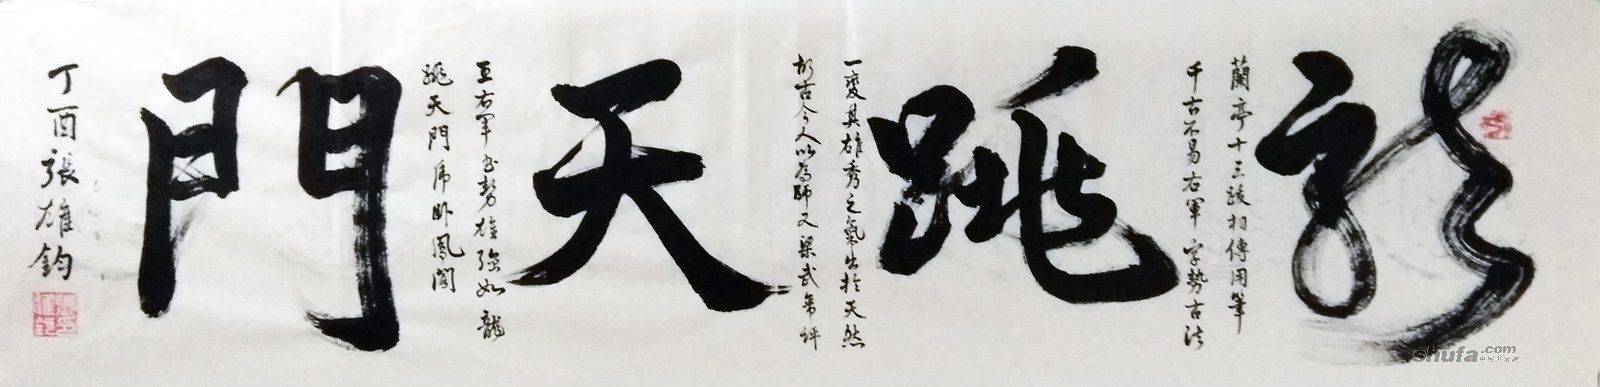 龍跳天門
蘭亭十三跋相傳用筆
千古不易右軍字勢古法
一變其雄秀之氣出於天然
故古今人以為師又梁武帝評
王右軍书勢雄强如龍
跳天門虎卧鳳閣
丁酉張雄鈞
shufa.com